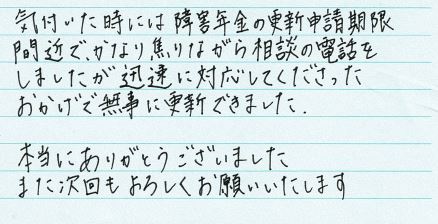 気付いた時には障害年金の更新申請期限
間近で、かなり焦りながら相談の電話を
しましたが迅速に対応してくださった
おかげで無事に更新できました.
本当にありがとうございました
また次回もよろしくお願いいたします